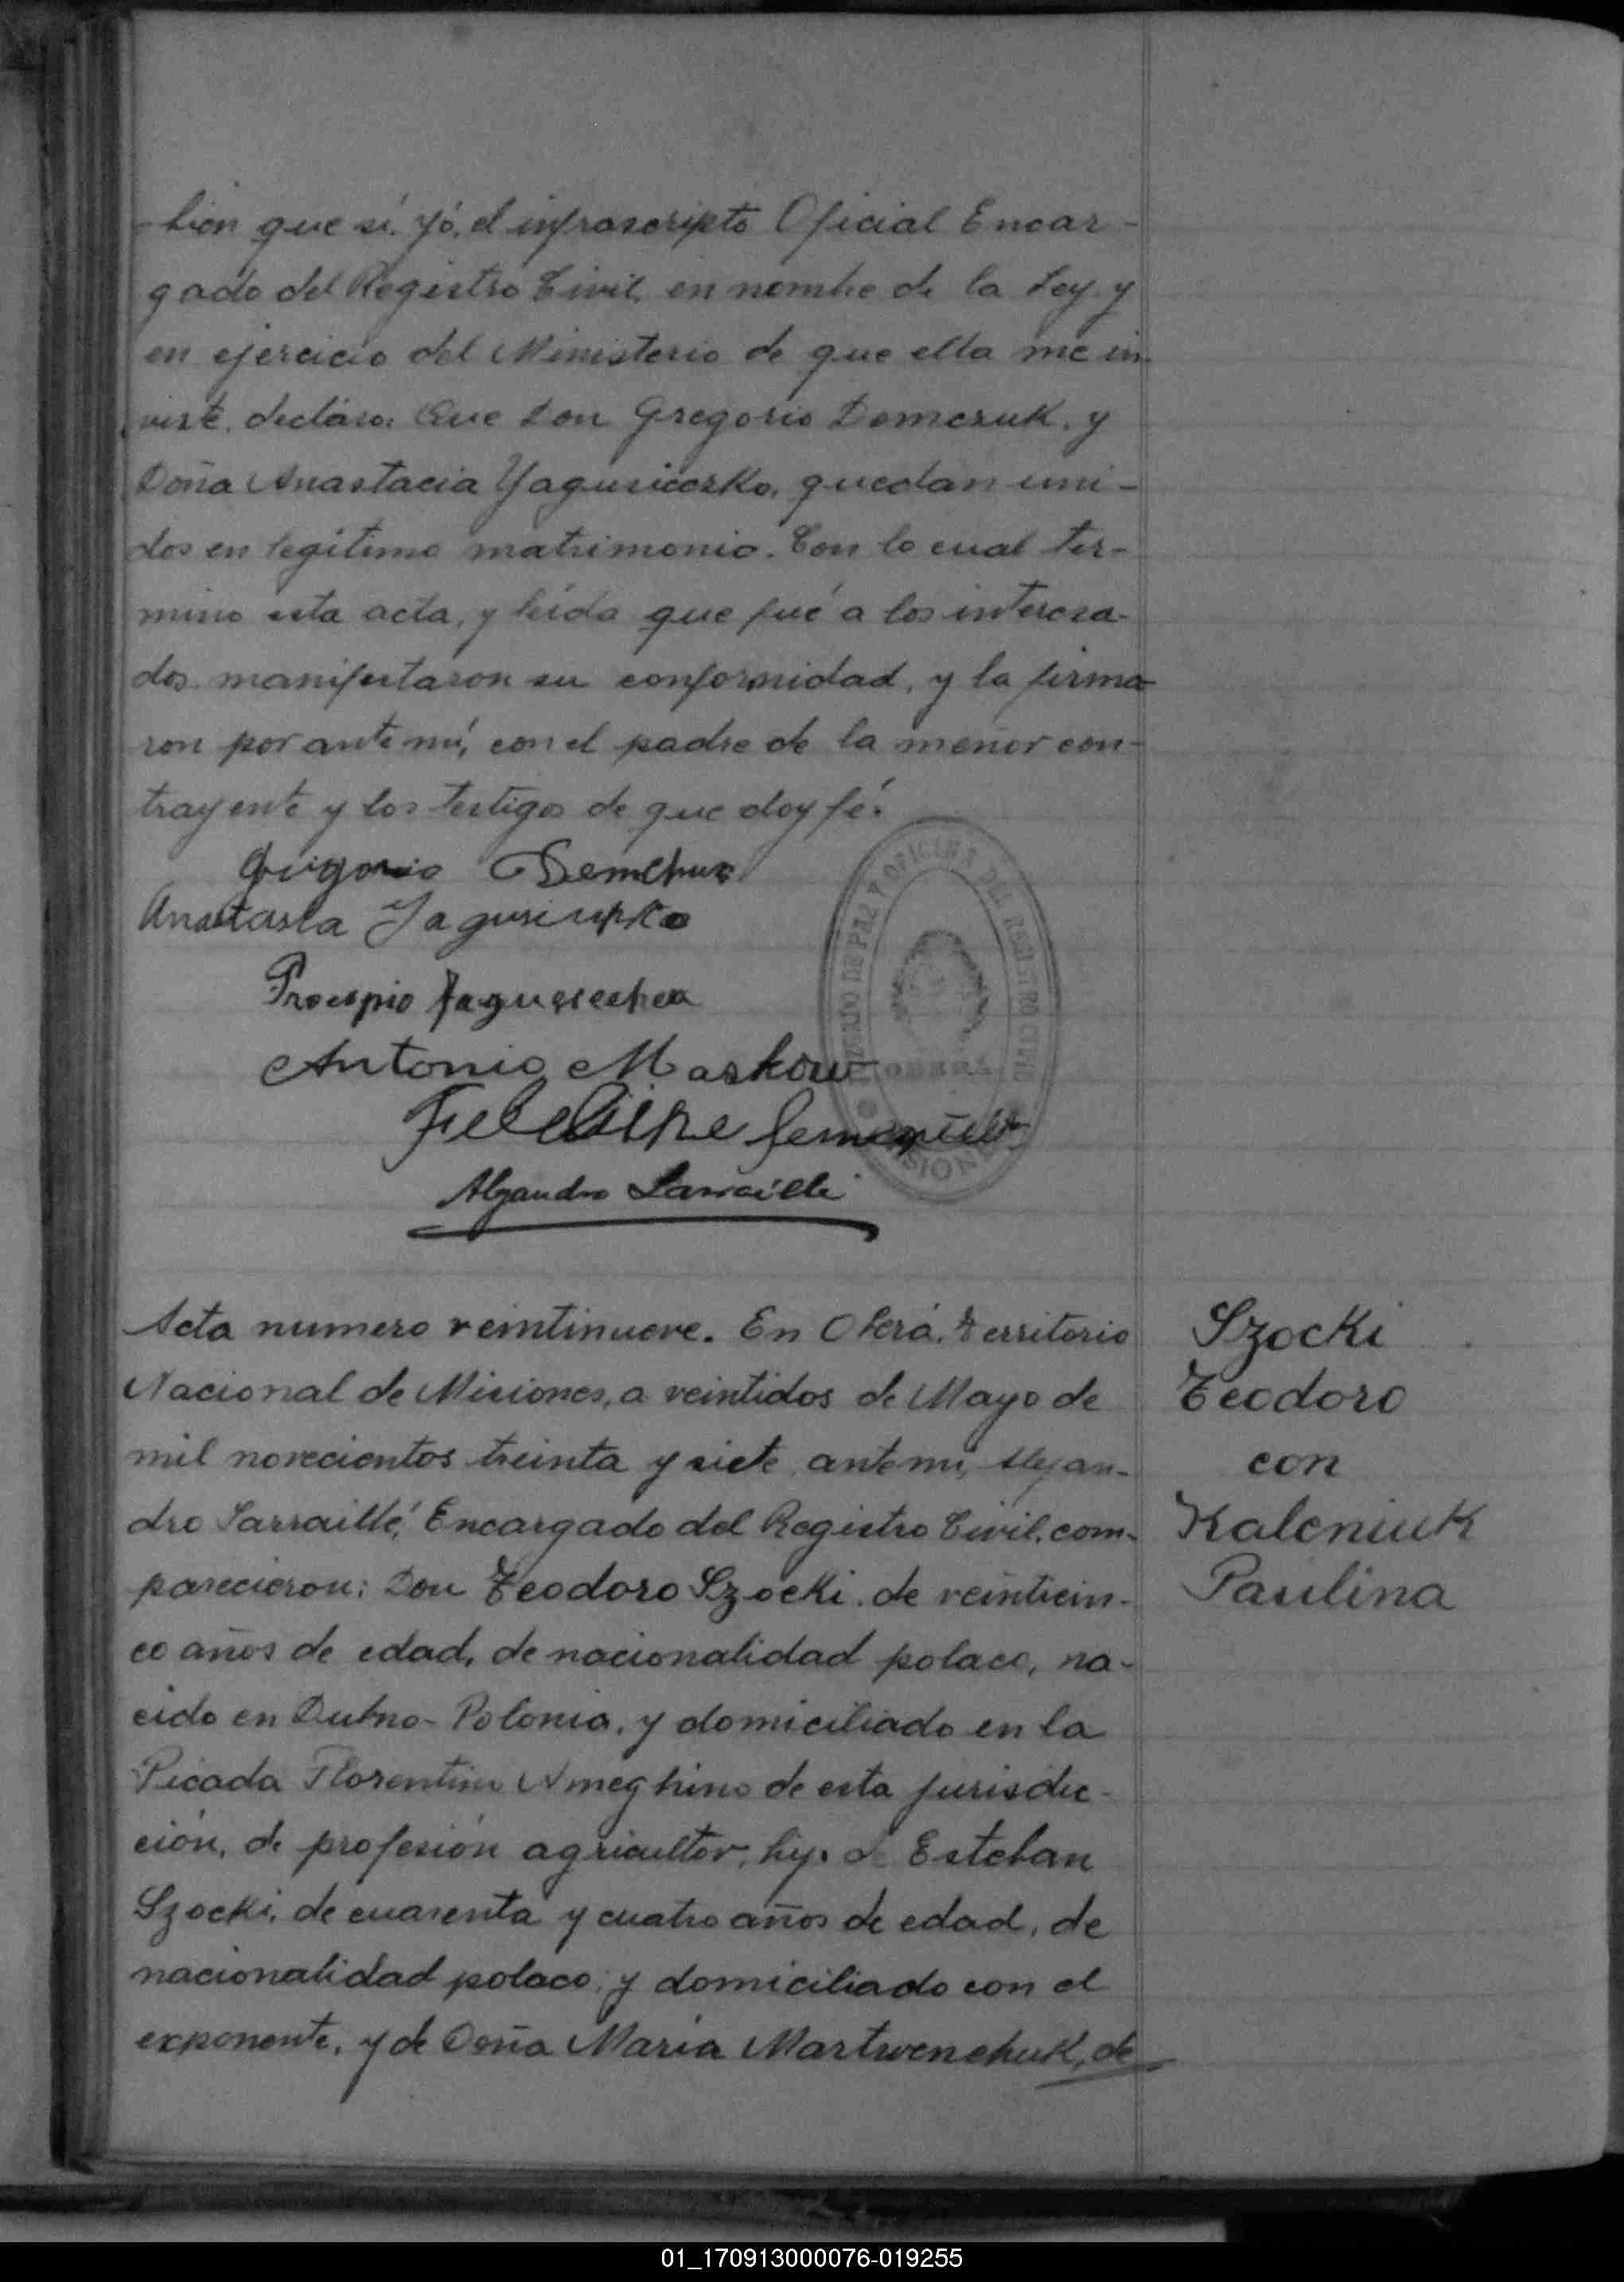 -bien que sí. Yó, el infrascripto Oficial Encar-
gado del Registro Civil, en nombre de la Ley, y
en ejercicio del Ministerio de que ella me in-
viste, declaro: Que Don Gregorio Domczuk, y
Doña Anastacia Yagusieczko, quedan uni-
dos en legítimo matrimonio. Con lo cual ter-
mino esta acta, y leída que fué a los interesa-
dos manifestaron su conformidad, y la firma-
ron por ante mí, con el padre de la menor con-
trayente y los testigos de que doy fé.
Demchuk
Anastasia
Antonio Maskow
Alejandro Sarraillé
JUZGADO DE PAZ Y OFICINA DEL REGISTRO CIVIL
OBERÁ
MISIONES
Acta numero veintinueve. En Oberá, Territorio
Nacional de Misiones, a veintidos de Mayo de
mil novecientos treinta y siete, ante mí, Alejan-
dro Sarraillé, Encargado del Registro Civil, com-
parecieron: Don Teodoro Szocki, de veinticin-
co años de edad, de nacionalidad polaco, na-
cido en Dubno- Polonia, y domiciliado en la
Picada Florentino Ameghino de esta jurisdic-
ción, de profesión agricultor, hijo de Esteban
Szocki, de cuarenta y cuatro años de edad, de
nacionalidad polaco, y domiciliado con el
exponente, y de Doña María Martwenchuk, de
Szocki
Teodoro
con
Kaleniuk
Paulina
01_170913000076-019255